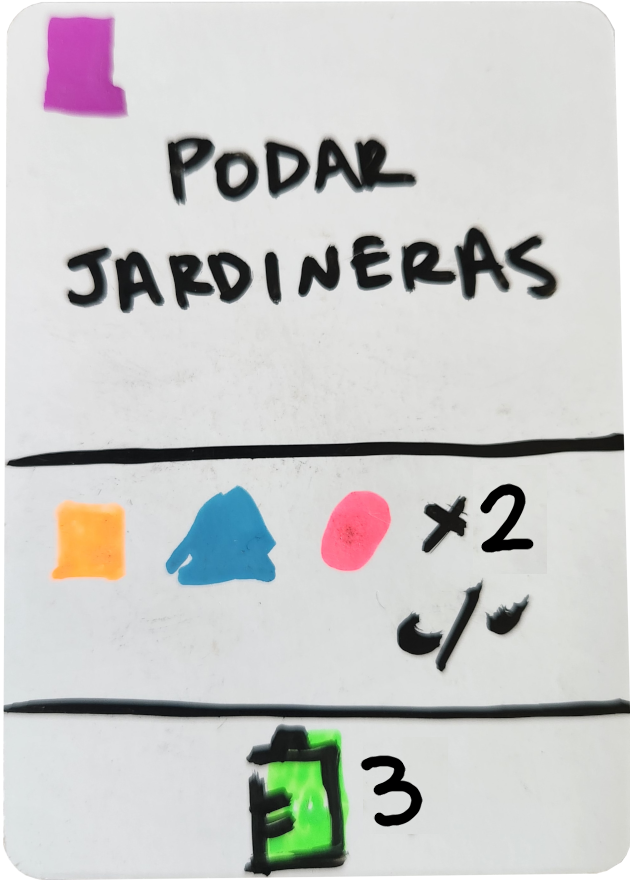 PODAR
JARDINERAS
×2
c/u
3